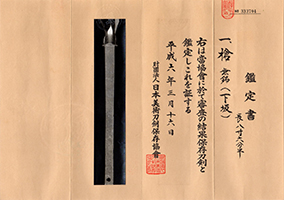 鑑定書
一、槍 無銘(下坂)
右は當協會に於て審査の結果保存刀剣と
鑑定しこれを証する
平成六年三月十六日
財團法人日本美術刀剣保存協會